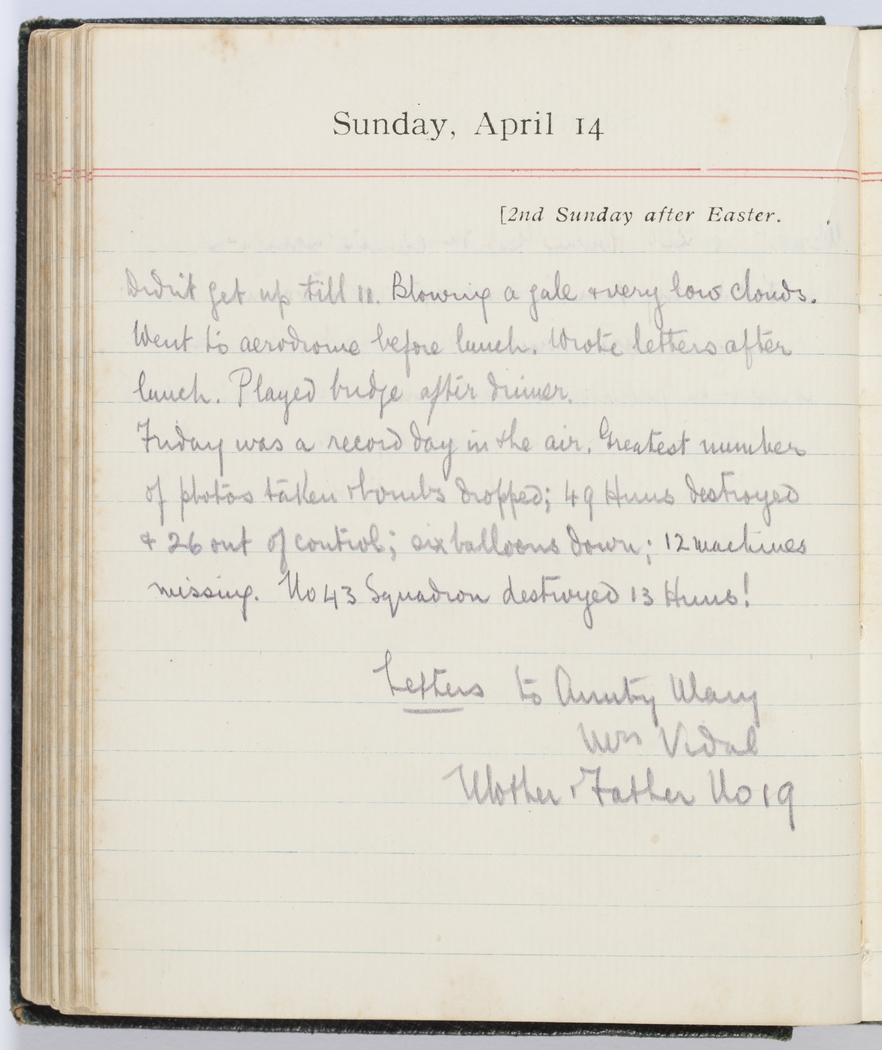 Sunday, April 14
[2nd Sunday after Easter.
Didn't get up till 11. Blowing a gale & very low clouds.
Went to aerodrome before lunch. Wrote letters after
lunch. Played bridge after dinner.
Friday was a record day in the air. Greatest number
of photos taken & bombs dropped; 49 Huns destroyed
& 26 out of control; six balloons down; 12 machines
missing. No 43 Squadron destroyed 13 Huns!
Letters to Aunty Mary
Mrs Vidal
Mother & Father No 19